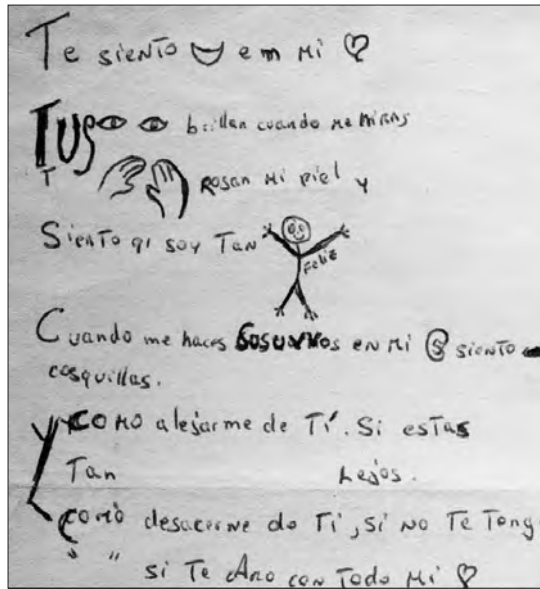 Te siento em mi
Tus brillan cuando me miras
T rosan mi piel y
Siento qi soy Tan
Feliz
Cuando me haces Susurros en mi siento
cosquillas.
Y como alejarme de Ti. Si estas
Tan Lejos.
como desacerme de Ti, si no Te Teng
" " si Te Amo con Todo Mi